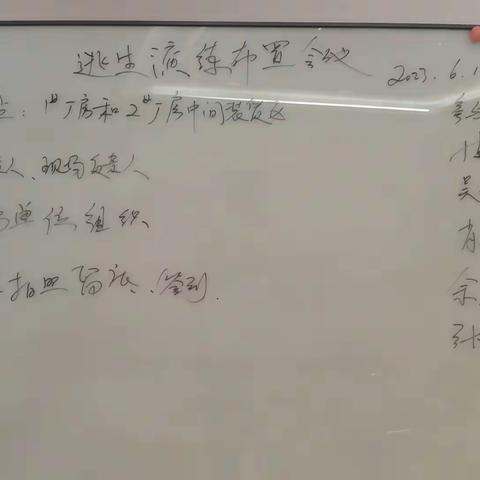 逃生演练布置会议
2023.6.1
1#厂房和2#厂房中间装货区
人、现场负责人
单位组织
拍照留底、签到.
吴
肖
余